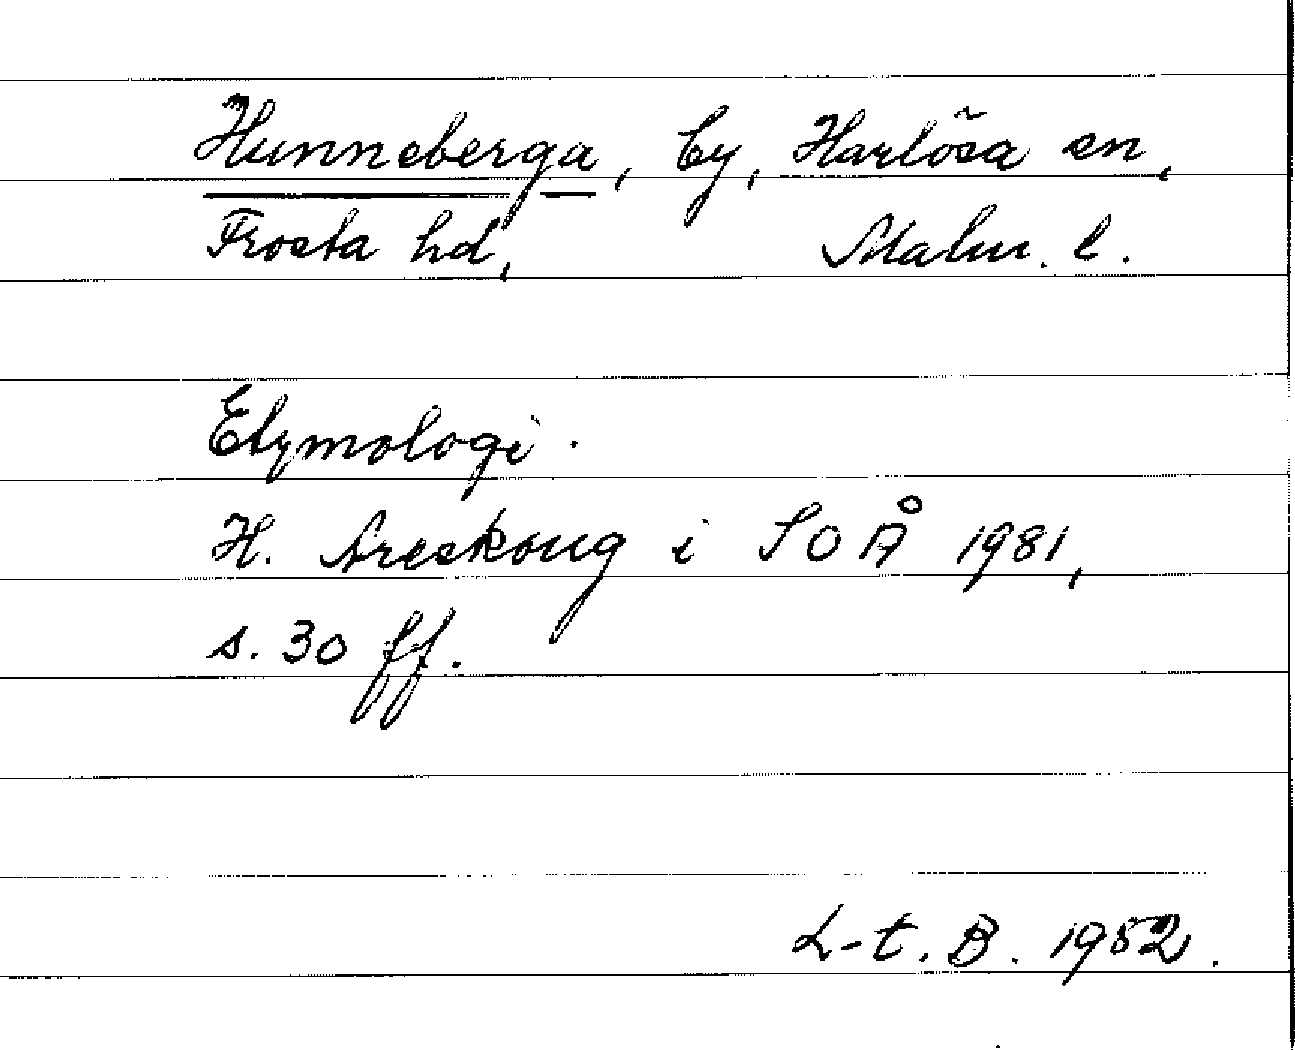 Hunneberga, by, Harlösa sn,
Frosta hd, Malm. l.
Etymologi.
H. Areskoug i SOÅ 1981,
s. 30 ff.
L-t. B. 1952.